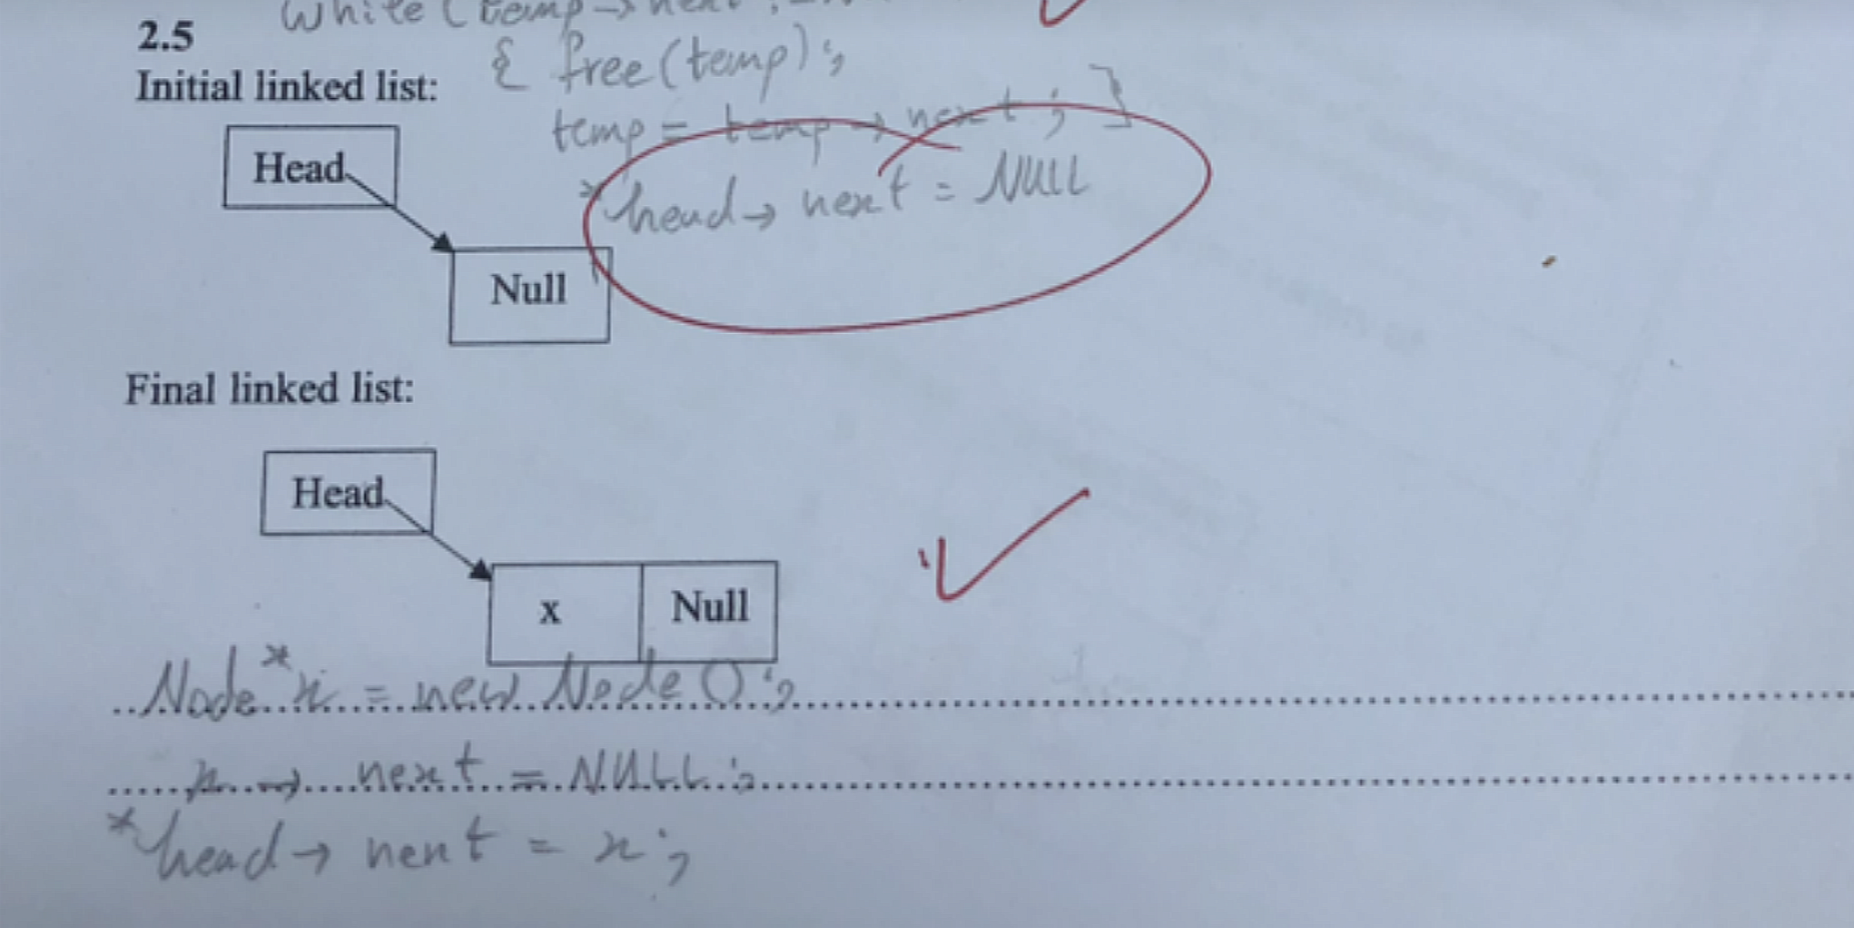 while (temp→next
2.5
{ free(temp);
Initial linked list:
temp = temp → next; }
Head
*head→ next = NULL
Null
Final linked list:
Head
x Null
Node* x = new Node();
x → next = NULL;
*head→ next = x;